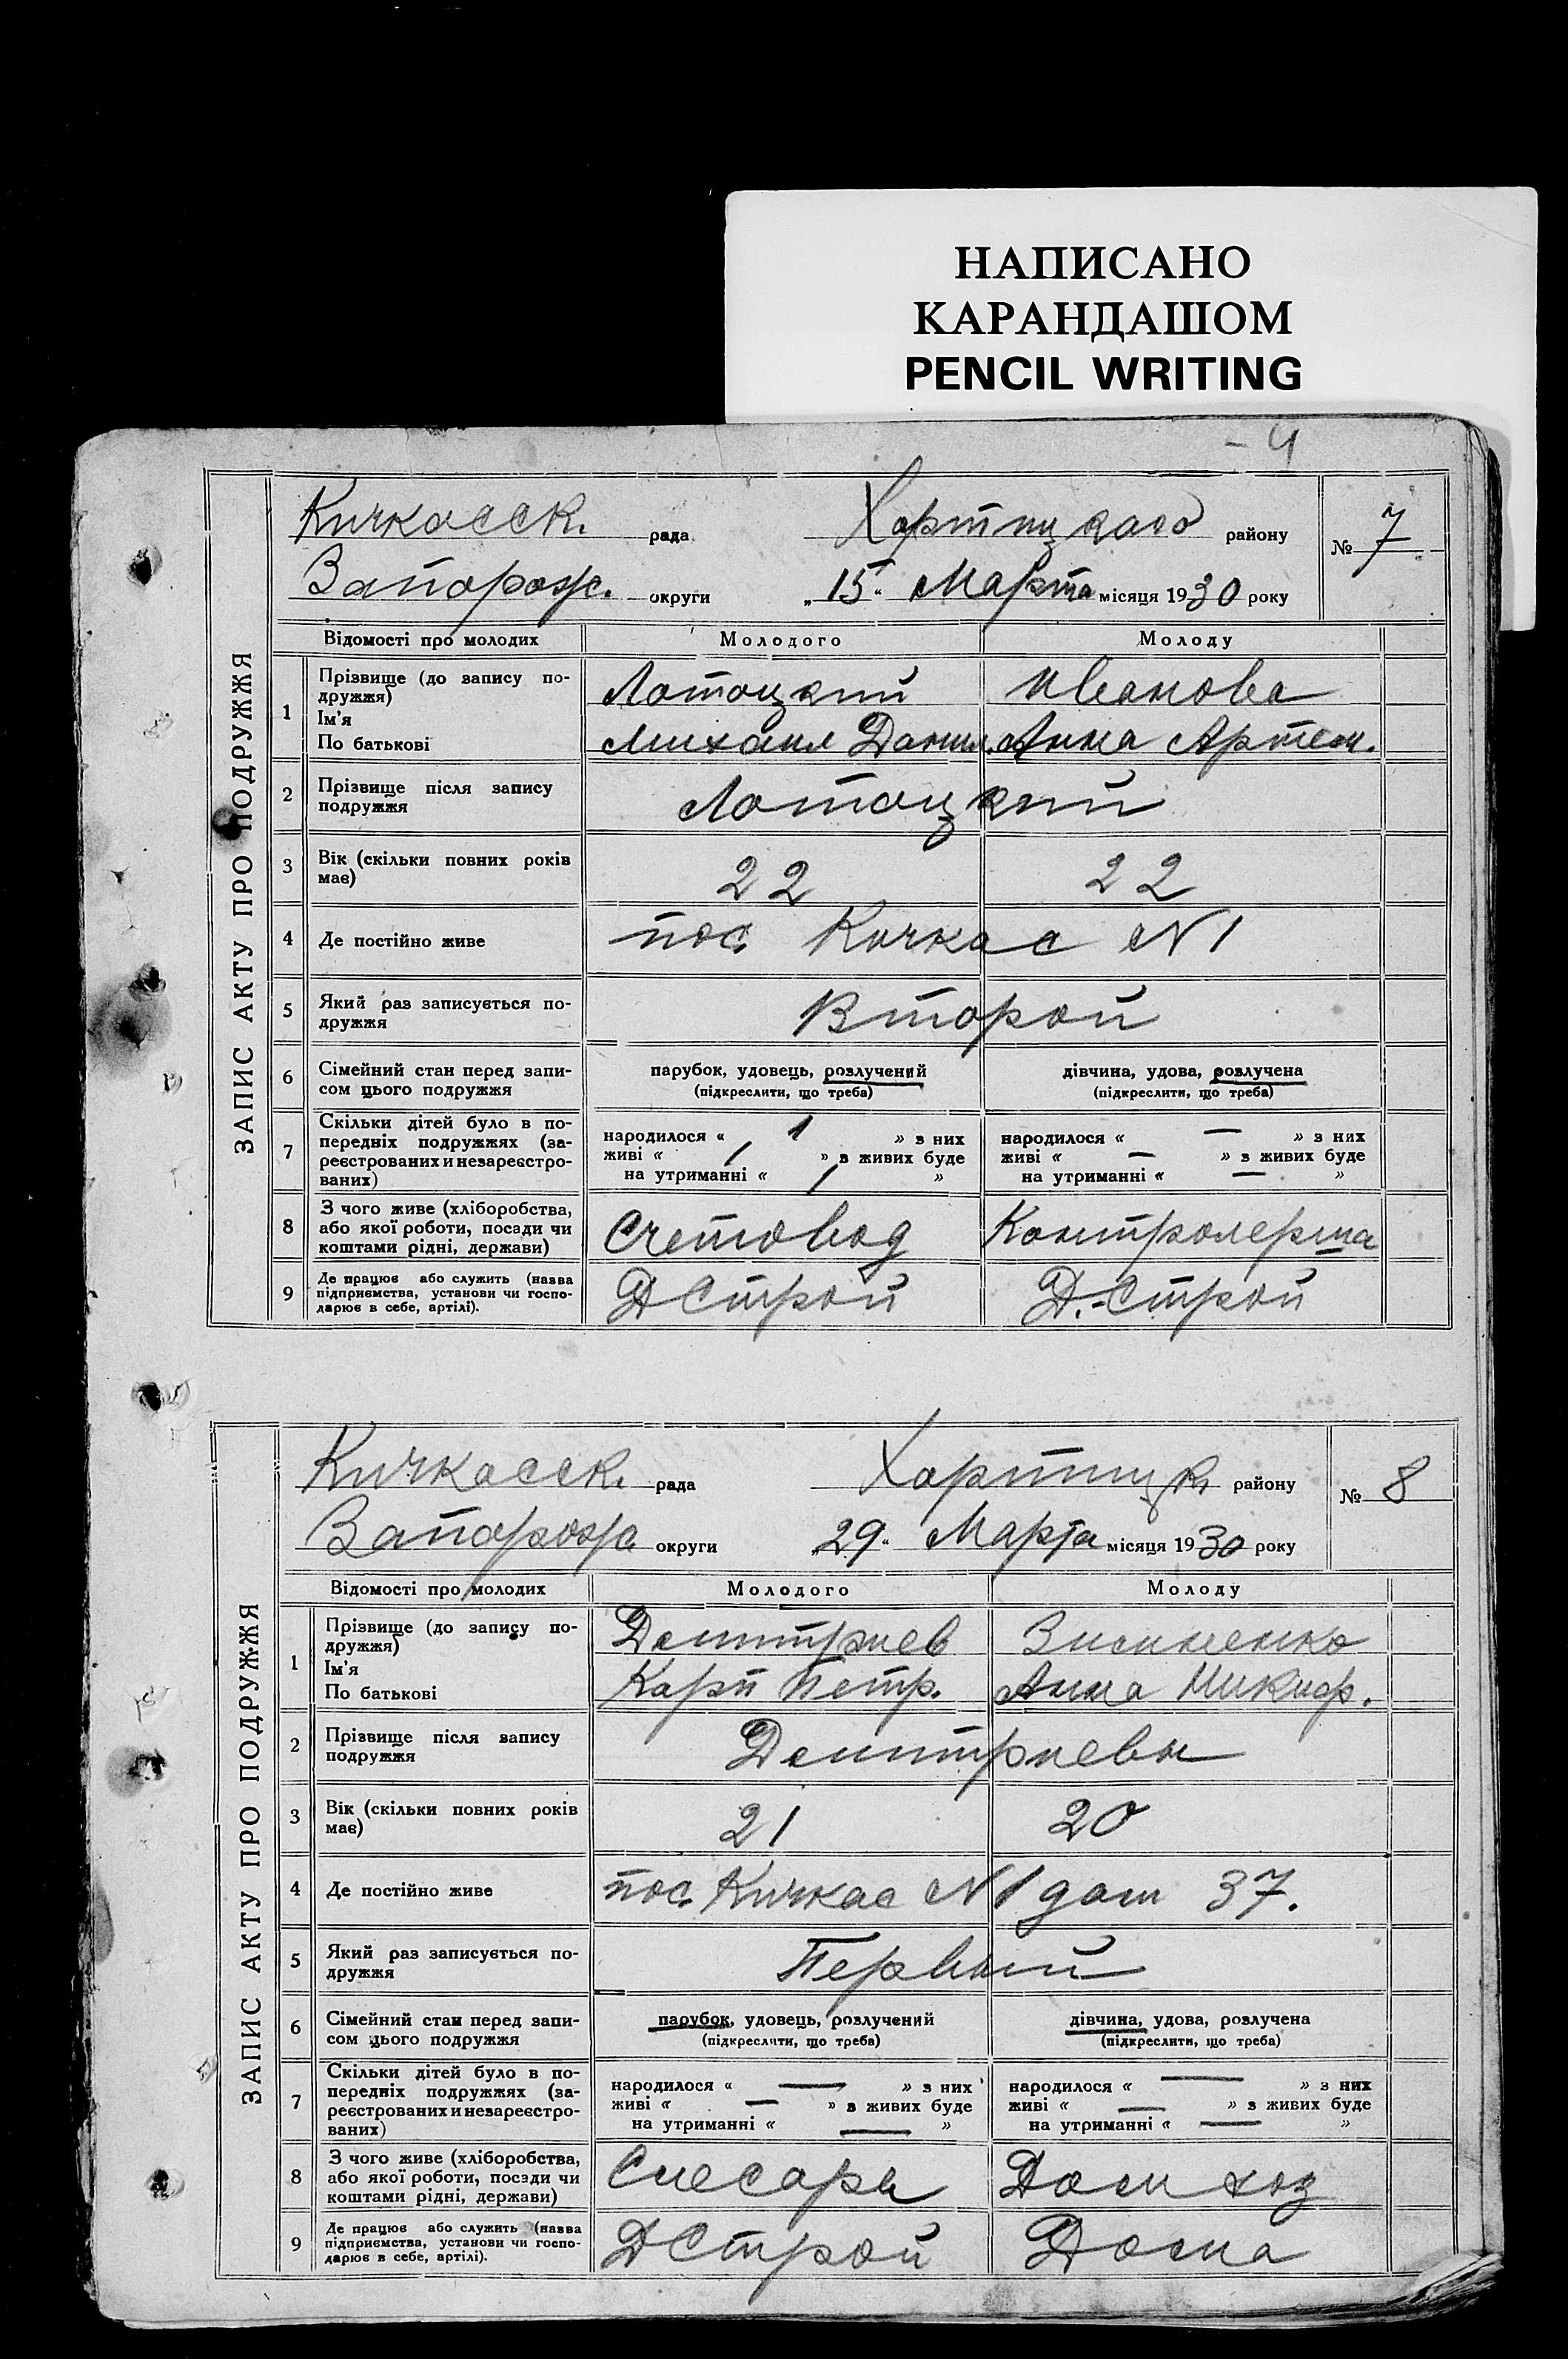 НАПИСАНО
КАРАНДАШОМ
PENCIL WRITING
- 4
ЗАПИС АКТУ ПРО ПОДРУЖЖЯ
Кичкасск. рада Хортицкого району № 7
Запорож. округи „15“ Марта місяця 1930 року
Відомості про молодих Молодого Молоду
1 Прізвище (до запису по-
дружжя) Лотоцкий Иванова
Ім'я
По батькові Михаил Данил. Анна Артем.
2 Прізвище після запису
подружжя Лотоцкий
3 Вік (скільки повних років
має) 22 22
4 Де постійно живе пос. Кичкас N 1
5 Який раз записується по-
дружжя Второй
6 Сімейний стан перед запи-
сом цього подружжя парубок, удовець, розлучений дівчина, удова, розлучена
(підкреслити, що треба) (підкреслити, що треба)
7 Скільки дітей було в по-
передніх подружжях (за-
реєстрованих и незареєстро-
ваних)
народилося « 1 » з них народилося « — » з них
живі « 1 » з живих буде живі « — » з живих буде
на утриманні « 1 » на утриманні « — »
8 З чого живе (хліборобства,
або якої роботи, посади чи
коштами рідні, держави) Счетовод Контролерша
9 Де працює або служить (назва
підприємства, установи чи госпо-
дарює в себе, артілі). ДСтрой Д.-Строй
ЗАПИС АКТУ ПРО ПОДРУЖЖЯ
Кичкасск. рада Хортицк. району № 8
Запорож. округи „29“ Марта місяця 1930 року
Відомості про молодих Молодого Молоду
1 Прізвище (до запису по-
дружжя) Дмитриев
Ім'я
По батькові Карп Петр. Анна Никиф.
2 Прізвище після запису
подружжя Дмитриевы
3 Вік (скільки повних років
має) 21 20
4 Де постійно живе пос. Кичкас N 1 дом 37.
5 Який раз записується по-
дружжя Первый
6 Сімейний стан перед запи-
сом цього подружжя парубок, удовець, розлучений дівчина, удова, розлучена
(підкреслити, що треба) (підкреслити, що треба)
7 Скільки дітей було в по-
передніх подружжях (за-
реєстрованих и незареєстро-
ваних)
народилося « — » з них народилося « — » з них
живі « — » з живих буде живі « — » з живих буде
на утриманні « — » на утриманні « — »
8 З чого живе (хліборобства,
або якої роботи, посади чи
коштами рідні, держави) Слесарь Дом хоз
9 Де працює або служить (назва
підприємства, установи чи госпо-
дарює в себе, артілі). ДСтрой Дома